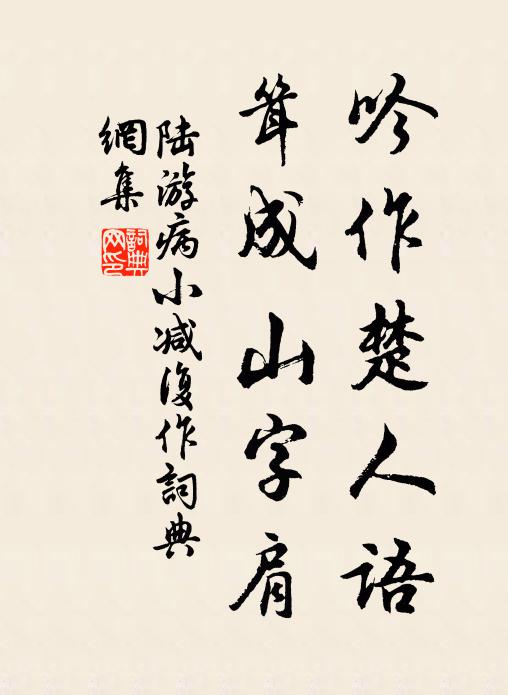 吟作楚人語
耸成山字肩
陆游病小减復作詞典
網集
詞典
网印